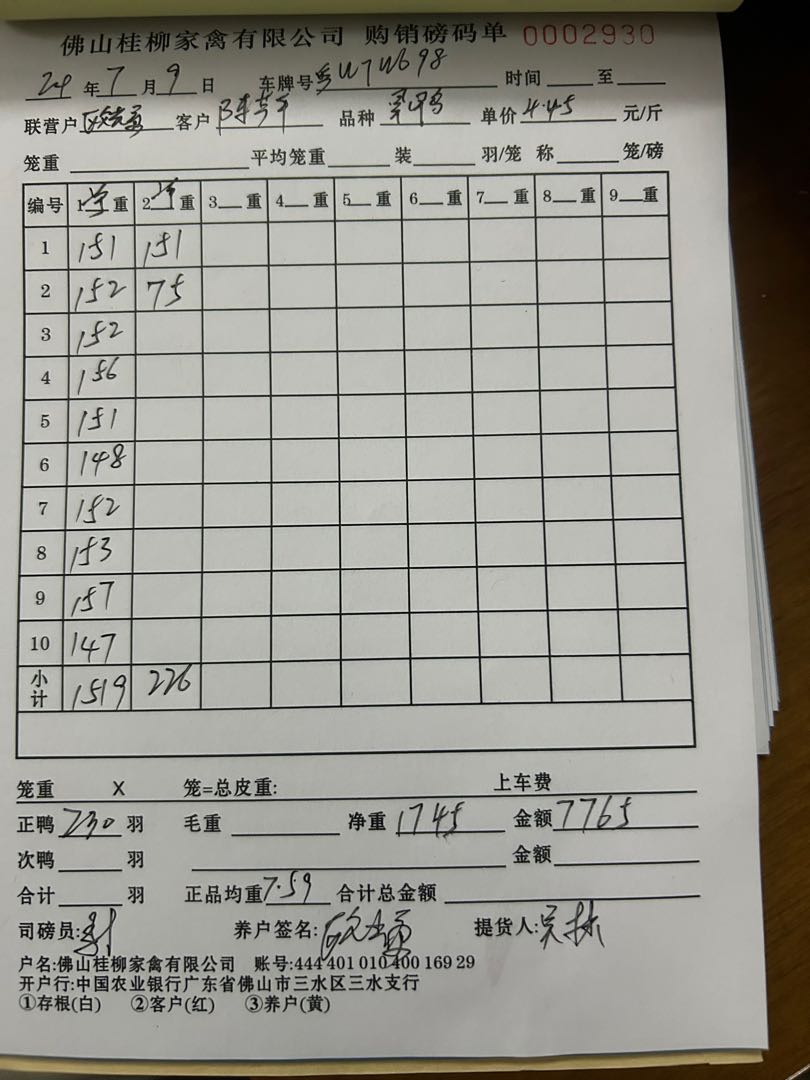 佛山桂柳家禽有限公司 购销磅码单 0002930
24 年 7 月 9 日 车牌号 时间 至
联营户 客户 陈 品种 单价 4.45 元/斤
笼重 平均笼重 装 羽/笼 称 笼/磅
编号 1 重 2 重 3 重 4 重 5 重 6 重 7 重 8 重 9 重
1 151 151
2 152 75
3 152
4 156
5 151
6 148
7 152
8 153
9 157
10 147
小计 1519 226
笼重 X 笼=总皮重: 上车费
正鸭 230 羽 毛重 净重 1745 金额 7765
次鸭 羽 金额
合计 羽 正品均重 7.59 合计总金额
司磅员: 养户签名: 提货人:
户名:佛山桂柳家禽有限公司 账号:444 401 010 400 169 29
开户行:中国农业银行广东省佛山市三水区三水支行
①存根(白) ②客户(红) ③养户(黄)